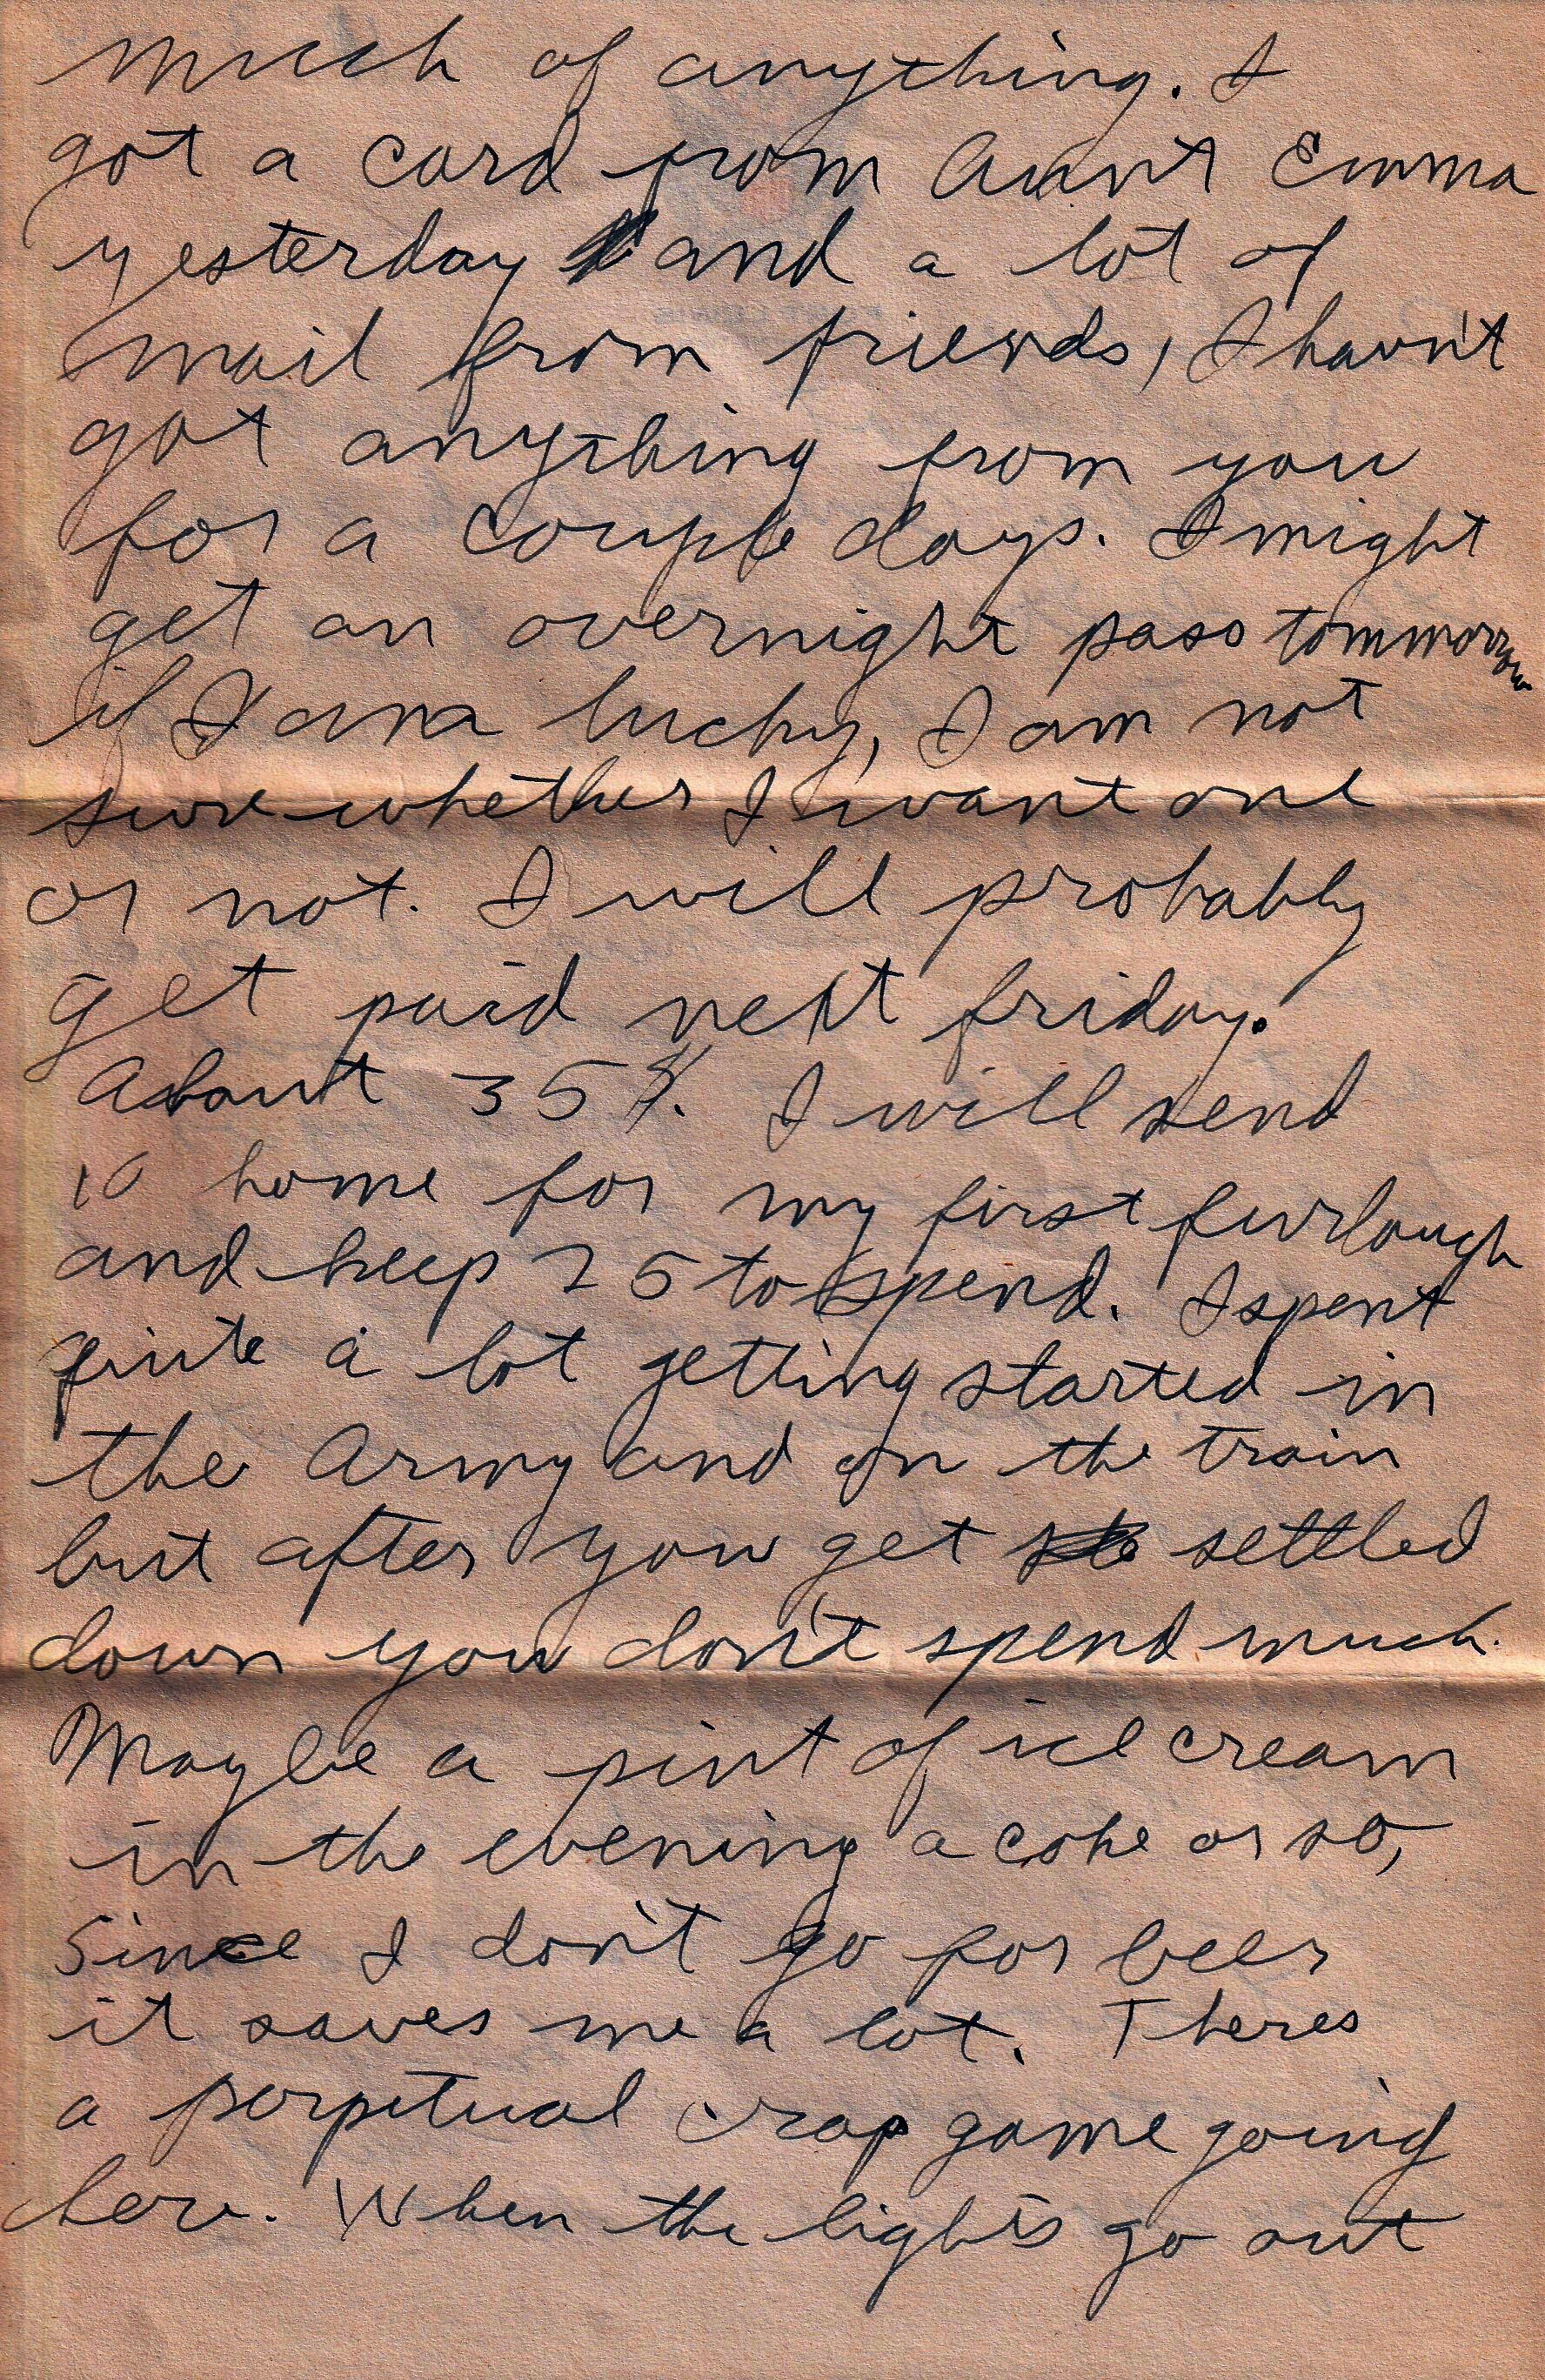 much of anything. I
got a card from Aunt Emma
yesterday and a lot of
mail from friends, I havn't
got anything from you
for a couple days. I might
get an overnight pass tommorrow
if I am lucky, I am not
sure whether I want one
or not. I will probably
get paid next friday.
About 35$. I will send
10 home for my first furlough
and keep 25 to spend. I spent
quite a lot getting started in
the Army and on the train
but after you get settled
down you don't spend much.
Maybe a pint of ice cream
in the evening a coke or so,
Since I don't go for beer
it saves me a lot. Theres
a perpetual crap game going
here. When the lights go out